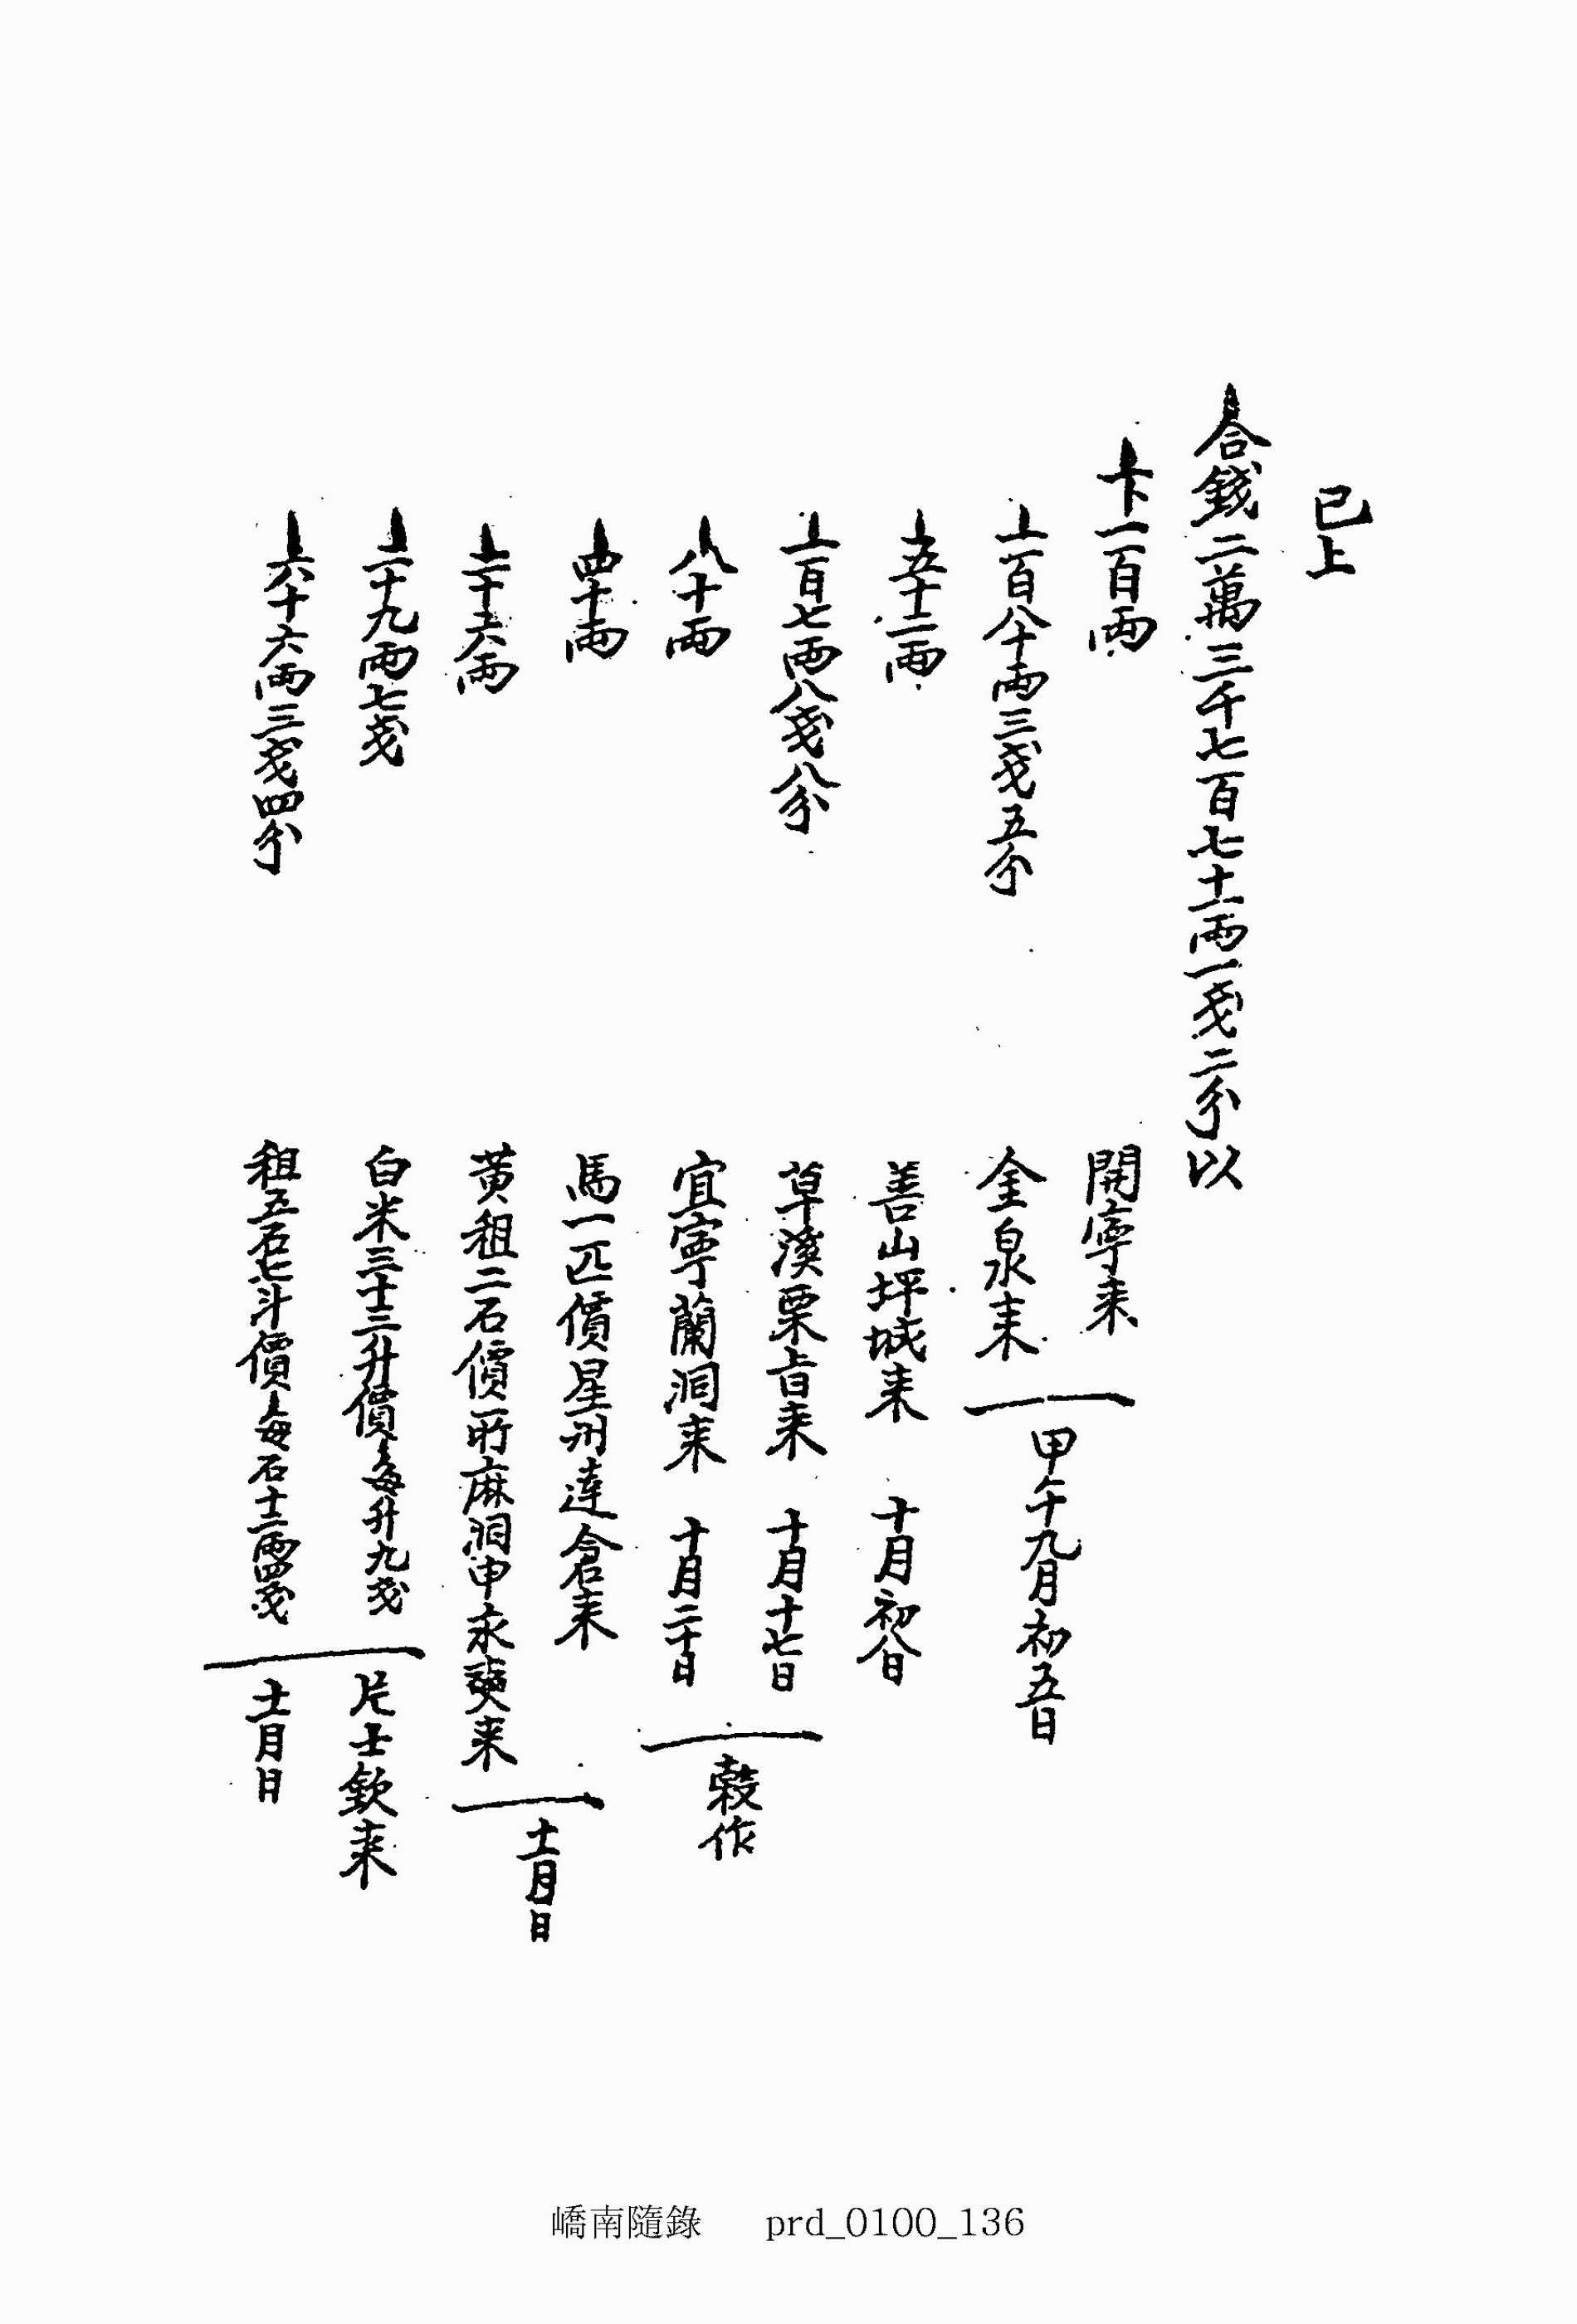 已上
合錢二萬三千七百七十一兩一戔二分以
卞一百兩 開寧来
一百八十兩三戔五分 金泉来
甲午九月初五日
五十二兩 善山坪城来 十月初八日
一百七兩八戔八分 草溪栗旨来 十月十七日
八十兩 宜寧蘭洞来 十月二十日
穀作
四十兩 馬一匹價星州達倉来
二十六兩 黄租二石價所麻洞申永奭来
十一月日
二十九兩七戔 白米三十三升價每升九戔
片士欽来
六十六兩三戔四分 租五石七斗價每石十二兩四戔
十一月日
嶠南隨錄 prd_0100_136